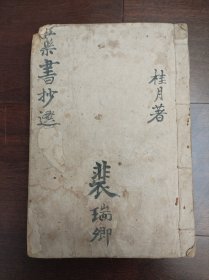 桂月著
裴瑞卿
書抄選